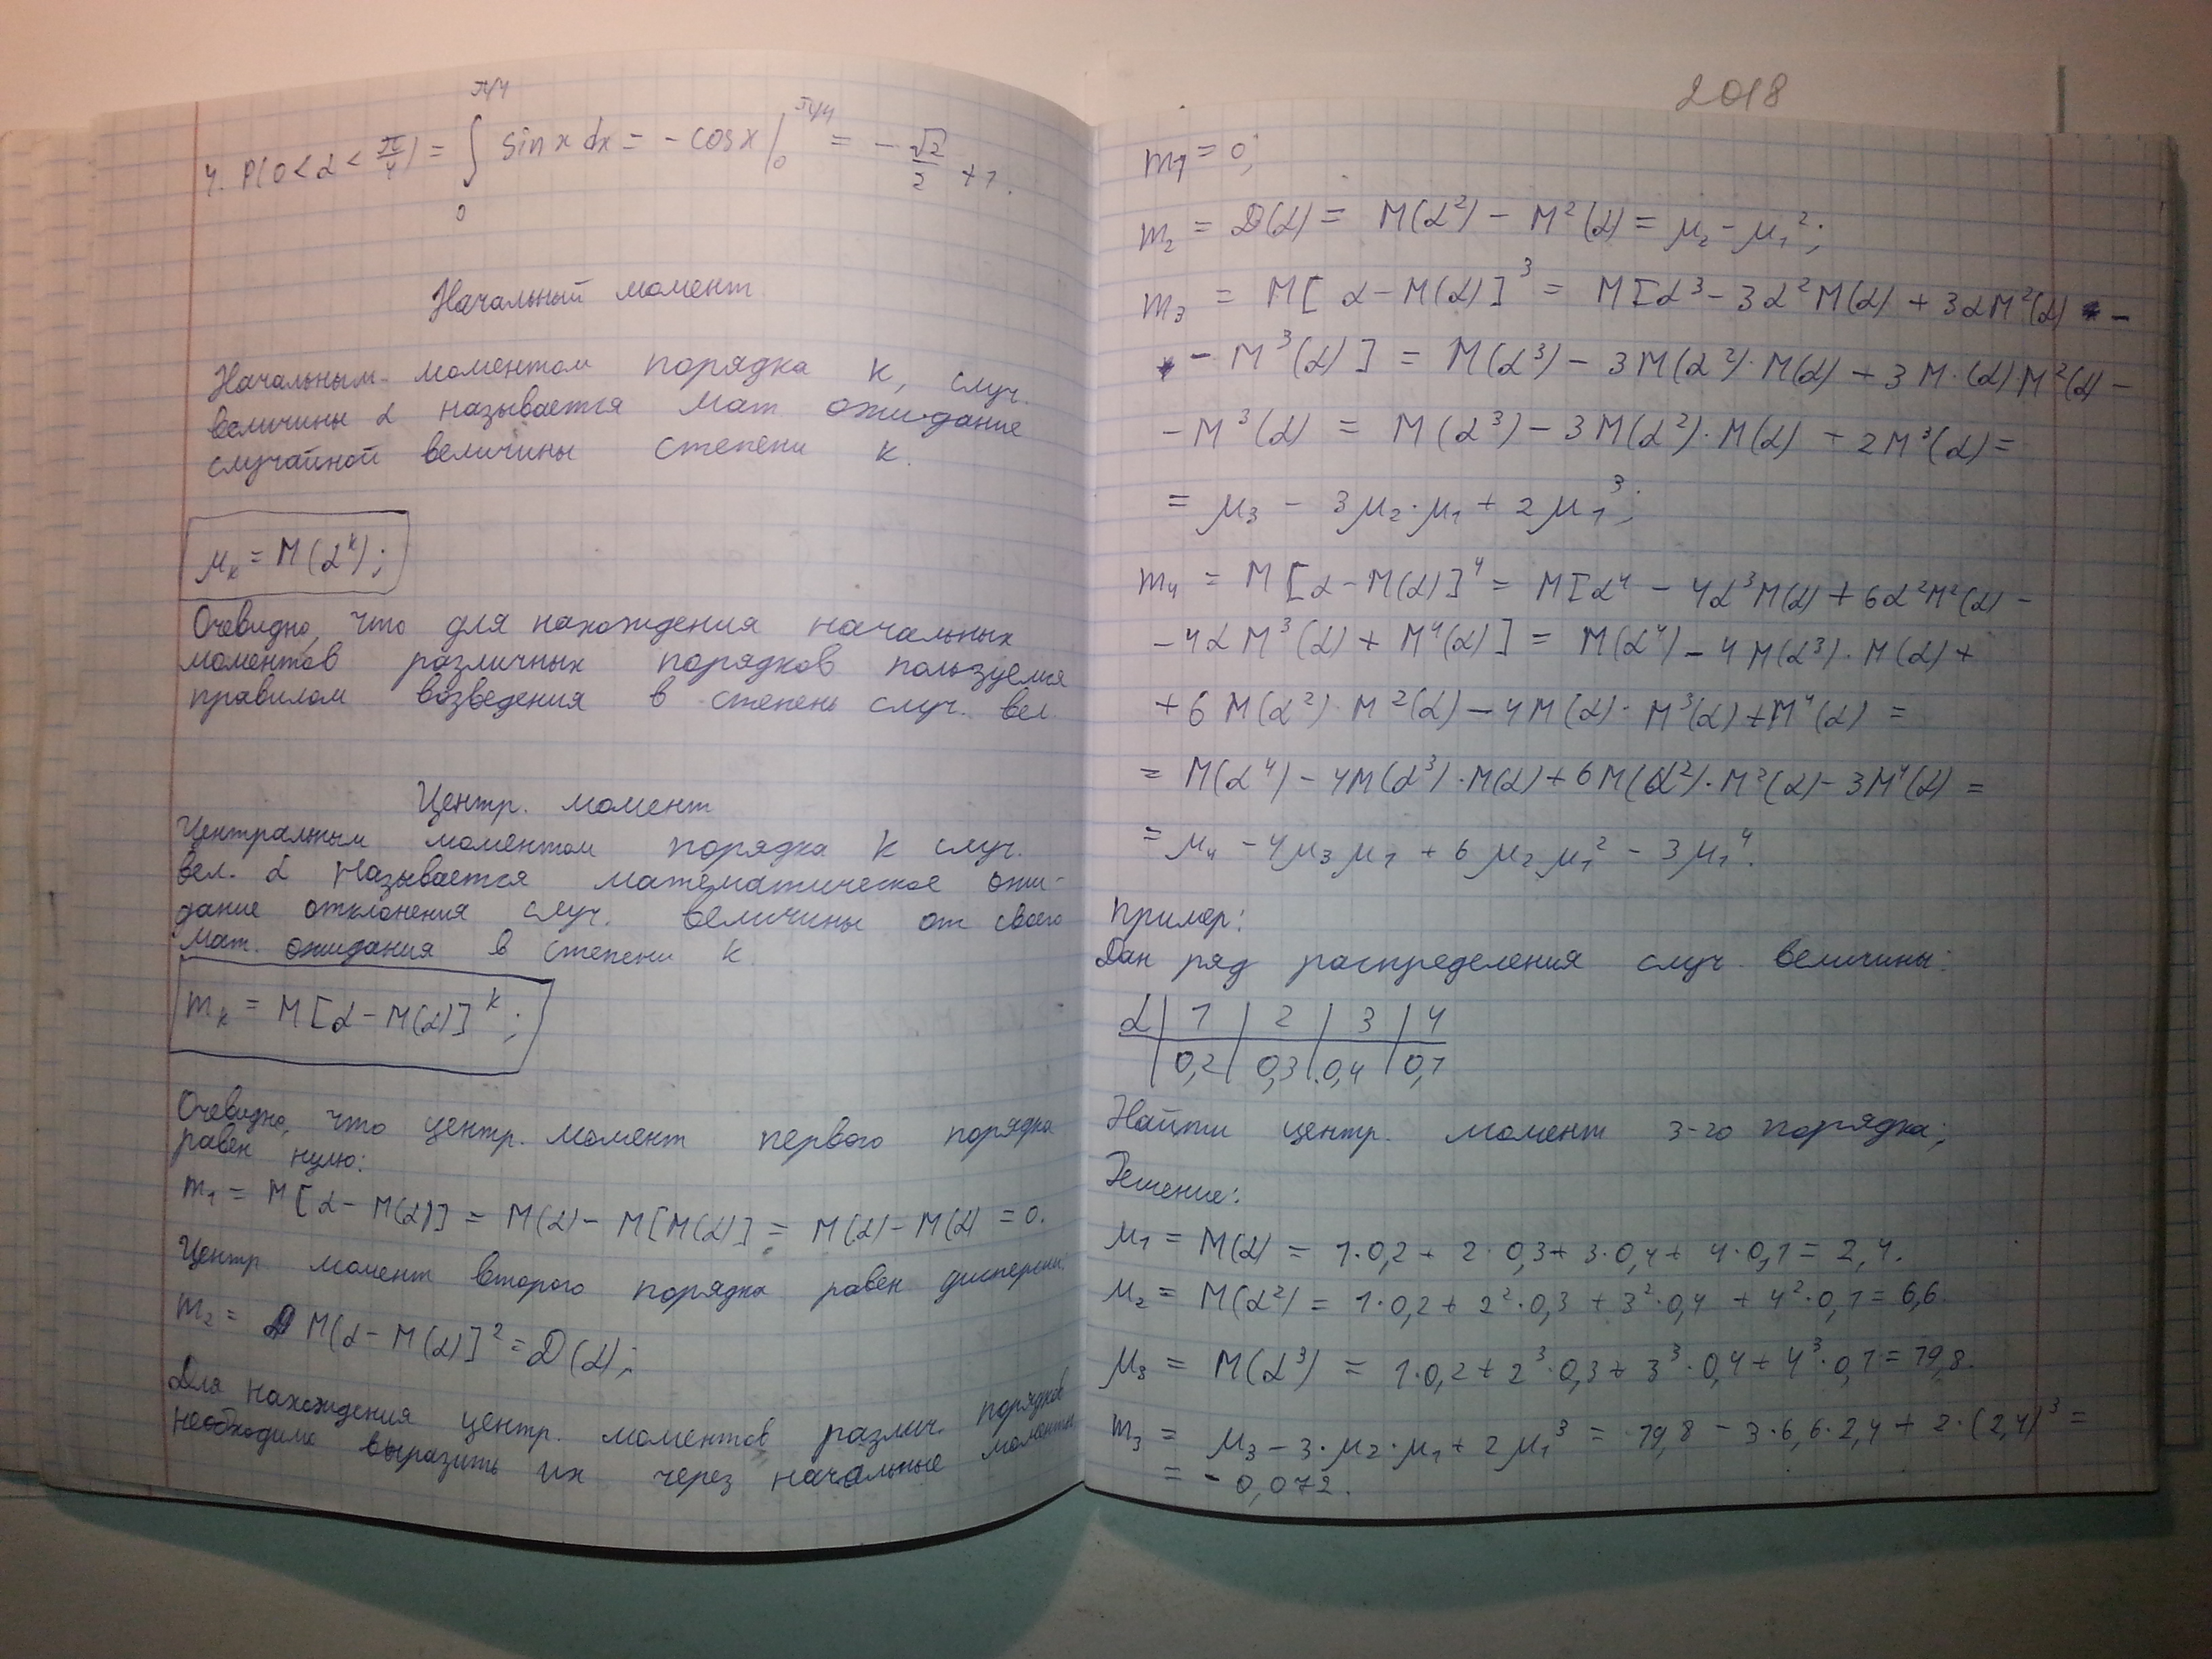 4. P(0 < α < π/4) = ∫₀^{π/4} sin x dx = - cos x |₀^{π/4} = - √2/2 + 1.
Начальный момент
Начальным моментом порядка к, случ.
величины α называется мат ожидание
случайной величины степени к.
μₖ = M(αᵏ);
Очевидно, что для нахождения начальных
моментов различных порядков пользуемся
правилом возведения в степень случ. вел.
Центр. момент
Центральным моментом порядка к случ.
вел. α называется математическое ожи-
дание отклонения случ. величины от своего
мат. ожидания в степени к.
mₖ = M[α - M(α)]ᵏ;
Очевидно, что центр. момент первого порядка
равен нулю:
m₁ = M[α - M(α)] = M(α) - M[M(α)] = M(α) - M(α) = 0.
Центр. момент второго порядка равен дисперсии:
m₂ = M(α - M(α)]² = D(α);
Для нахождения центр. моментов различ. порядков
необходимо выразить их через начальные моменты
2018
m₁ = 0;
m₂ = D(α) = M(α²) - M²(α) = μ₂ - μ₁²;
m₃ = M[α - M(α)]³ = M[α³ - 3α²M(α) + 3αM²(α) -
- M³(α)] = M(α³) - 3M(α²)·M(α) + 3M·(α)·M²(α) -
- M³(α) = M(α³) - 3M(α²)·M(α) + 2M³(α) =
= μ₃ - 3μ₂·μ₁ + 2μ₁³;
m₄ = M[α - M(α)]⁴ = M[α⁴ - 4α³M(α) + 6α²M²(α) -
- 4αM³(α) + M⁴(α)] = M(α⁴) - 4M(α³)·M(α) +
+ 6M(α²)·M²(α) - 4M(α)·M³(α) + M⁴(α) =
= M(α⁴) - 4M(α³)·M(α) + 6M(α²)·M²(α) - 3M⁴(α) =
= μ₄ - 4μ₃μ₁ + 6μ₂μ₁² - 3μ₁⁴.
Пример:
Дан ряд распределения случ. величины:
α | 1 | 2 | 3 | 4
| 0,2 | 0,3 | 0,4 | 0,1
Найти центр. момент 3-го порядка;
Решение:
μ₁ = M(α) = 1·0,2 + 2·0,3 + 3·0,4 + 4·0,1 = 2,4.
μ₂ = M(α²) = 1·0,2 + 2²·0,3 + 3²·0,4 + 4²·0,1 = 6,6.
μ₃ = M(α³) = 1·0,2 + 2³·0,3 + 3³·0,4 + 4³·0,1 = 19,8.
m₃ = μ₃ - 3·μ₂·μ₁ + 2μ₁³ = 19,8 - 3·6,6·2,4 + 2·(2,4)³ =
= - 0,072.